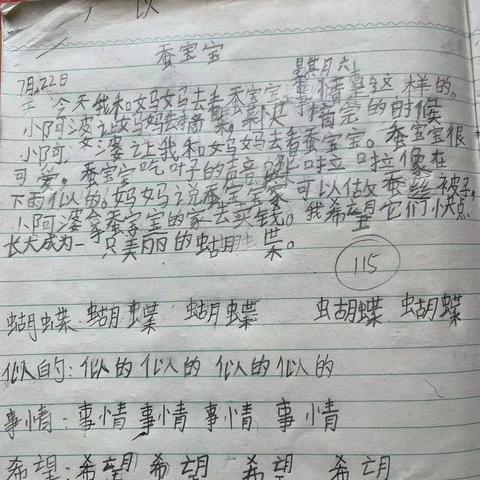 蚕宝宝
7月22日 星期六
今天我和妈妈去看蚕宝宝,事情是这样的。
小阿婆让妈妈去摘 摘完的时候
小阿婆让我和妈妈去看蚕宝宝。蚕宝宝很
可爱。蚕宝宝吃叶子的声音 啦啦像在
下雨似的。妈妈说蚕宝宝 可以做蚕丝被子,
小阿婆拿蚕宝宝的家去卖钱。我希望它们快点
长大成为一只美丽的蝴蝶。
115
蝴蝶 蝴蝶 蝴蝶 蝴蝶 蝴蝶
似的:似的 似的 似的 似的
事情:事情 事情 事情 事情
希望:希望 希望 希望 希望